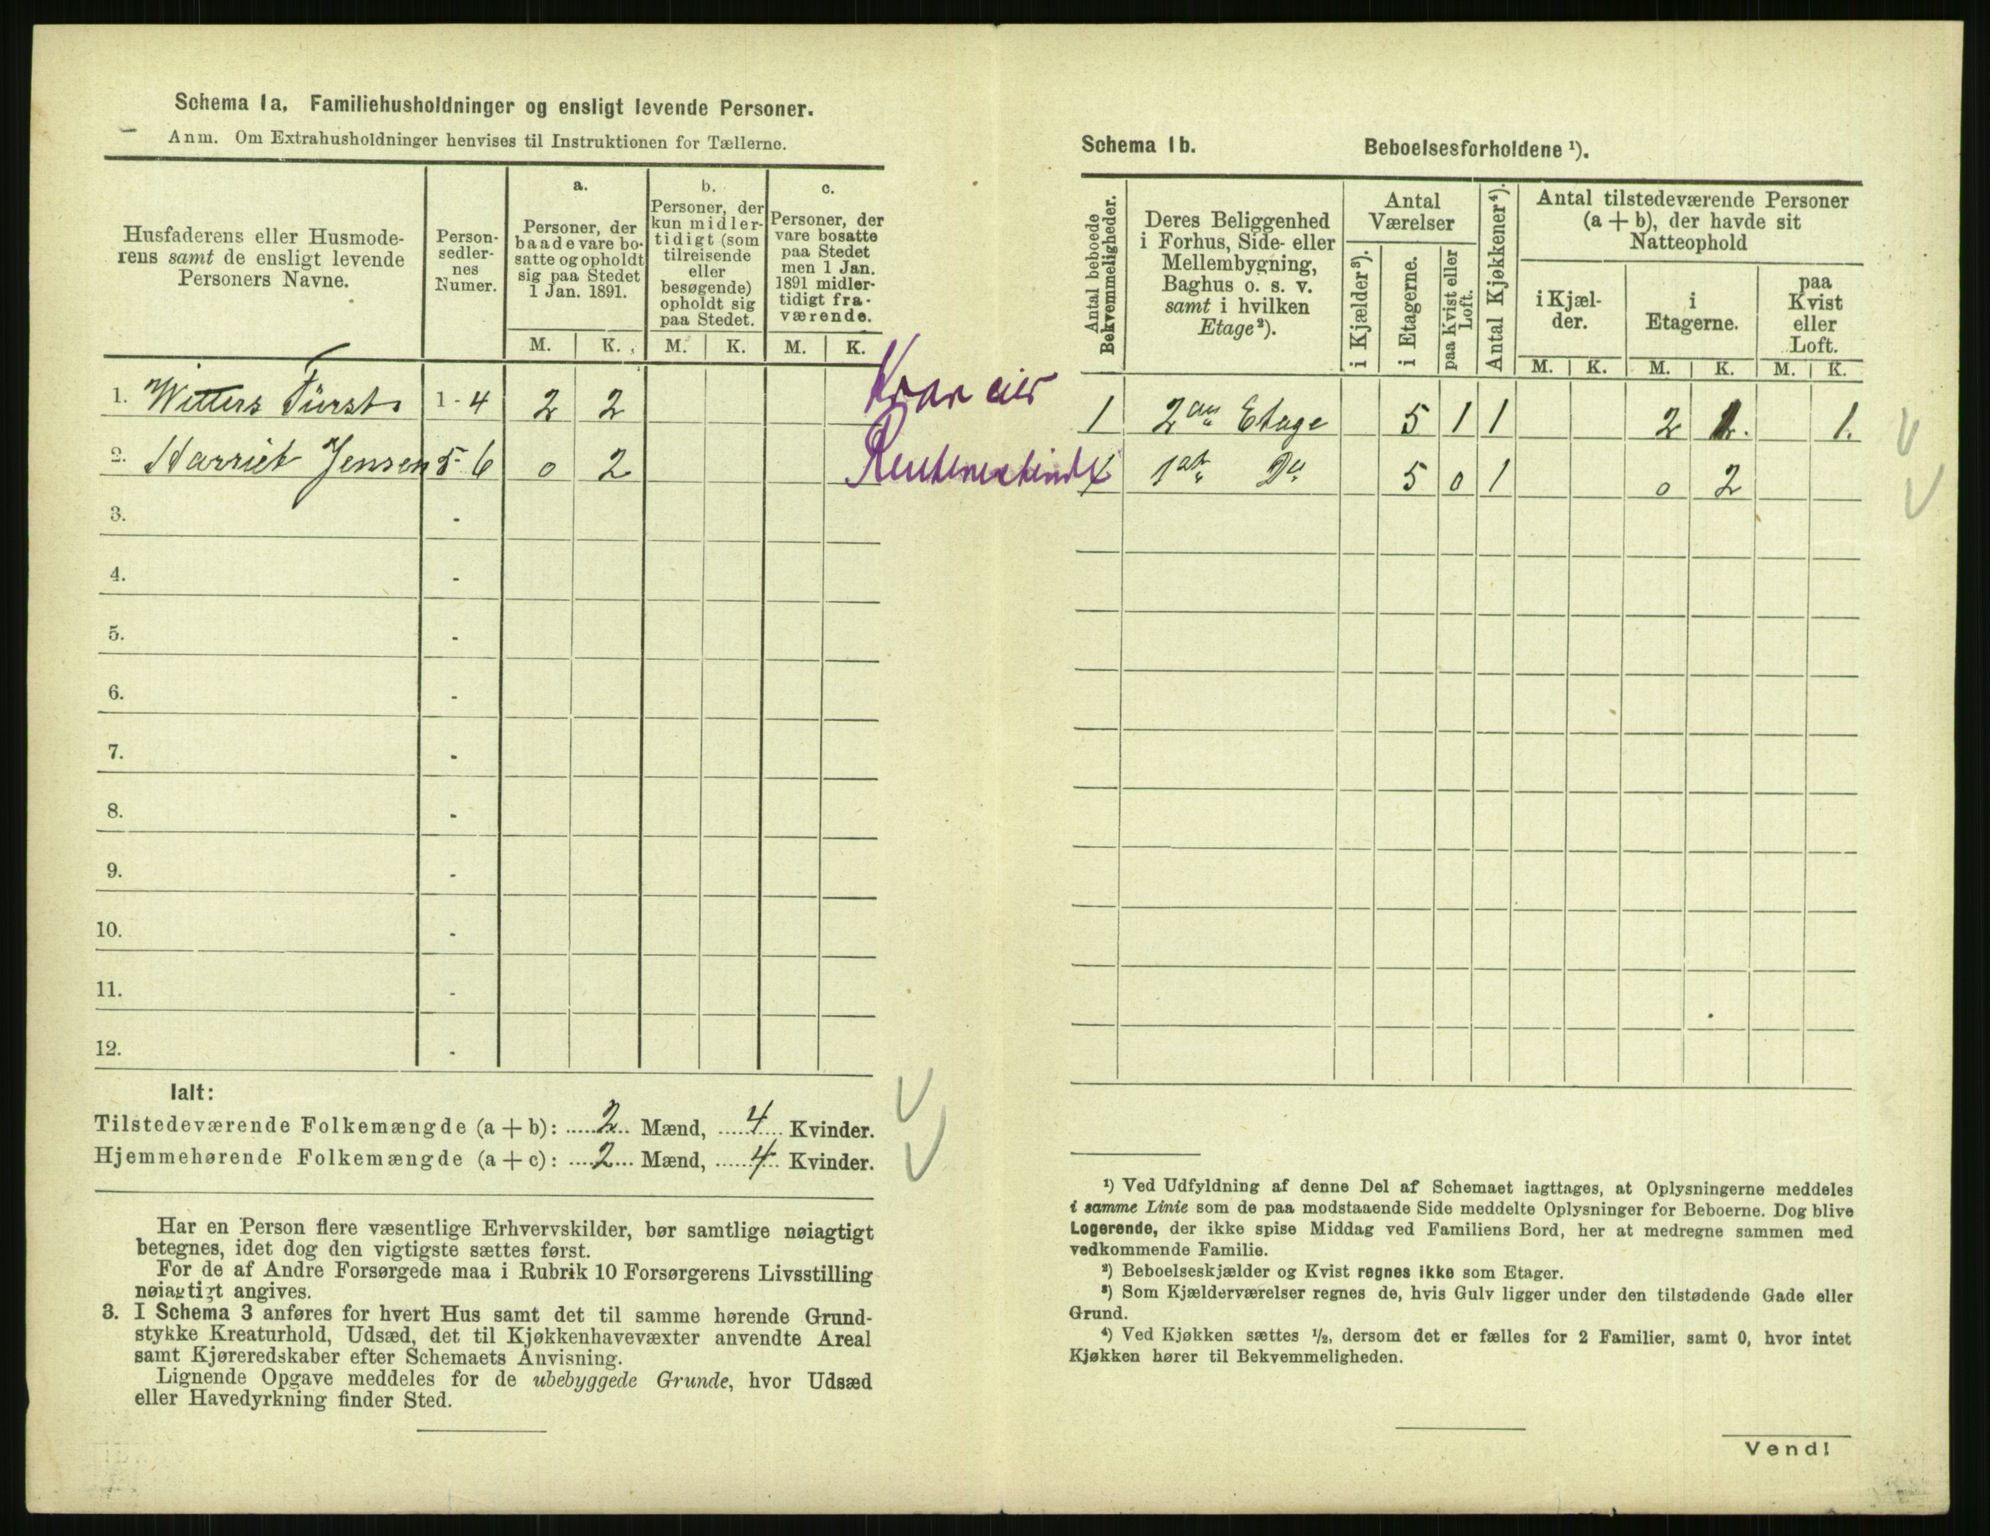 Schema 1a. Familiehusholdninger og ensligt levende Personer.
Anm. Om Extrahusholdninger henvises til Instruktionen for Tællerne.
Husfaderens eller Husmode-
rens samt de ensligt levende
Personers Navne.
Person-
sedler-
nes
Numer.
a.
Personer, der
baade vare bo-
satte og opholdt
sig paa Stedet
1 Jan. 1891.
b.
Personer, der
kun midler-
tidigt (som
tilreisende
eller
besøgende)
opholdt sig
paa Stedet.
c.
Personer, der
vare bosatte
paa Stedet
men 1 Jan.
1891 midler-
tidigt fra-
værende.
M. K. M. K. M. K.
1. Witters Fürst. 1 - 4 2 2
2. Harriet Jensen 5 - 6 0 2
3. -
4. -
5. -
6. -
7. -
8. -
9. -
10. -
11. -
12. -
Ialt:
Tilstedeværende Folkemængde (a + b): 2 Mænd, 4 Kvinder.
Hjemmehørende Folkemængde (a + c): 2 Mænd, 4 Kvinder.
Har en Person flere væsentlige Erhvervskilder, bør samtlige nøiagtigt
betegnes, idet dog den vigtigste sættes først.
For de af Andre Forsørgede maa i Rubrik 10 Forsørgerens Livsstilling
nøiagtigt angives.
3. I Schema 3 anføres for hvert Hus samt det til samme hørende Grund-
stykke Kreaturhold, Udsæd, det til Kjøkkenhavevæxter anvendte Areal
samt Kjøreredskaber efter Schemaets Anvisning.
Lignende Opgave meddeles for de ubebyggede Grunde, hvor Udsæd
eller Havedyrkning finder Sted.
Schema 1b. Beboelsesforholdene ¹).
Antal beboede
Bekvemmeligheder.
Deres Beliggenhed
i Forhus, Side- eller
Mellembygning,
Baghus o. s. v.
samt i hvilken
Etage²).
Antal
Værelser
i Kjælder³).
i Etagerne.
paa Kvist eller
Loft.
Antal Kjøkkener⁴).
Antal tilstedeværende Personer
(a + b), der havde sit
Natteophold
i Kjæl-
der.
i
Etagerne.
paa
Kvist
eller
Loft.
M. K. M. K. M. K.
1 2den Etage 5 1 1 2 1. 1.
1 1ste Do 5 0 1 0 2
¹) Ved Udfyldning af denne Del af Schemaet iagttages, at Oplysningerne meddeles
i samme Linie som de paa modstaaende Side meddelte Oplysninger for Beboerne. Dog blive
Logerende, der ikke spise Middag ved Familiens Bord, her at medregne sammen med
vedkommende Familie.
²) Beboelseskjælder og Kvist regnes ikke som Etager.
³) Som Kjælderværelser regnes de, hvis Gulv ligger under den tilstødende Gade eller
Grund.
⁴) Ved Kjøkken sættes ½, dersom det er fælles for 2 Familier, samt 0, hvor intet
Kjøkken hører til Bekvemmeligheden.
Vend!